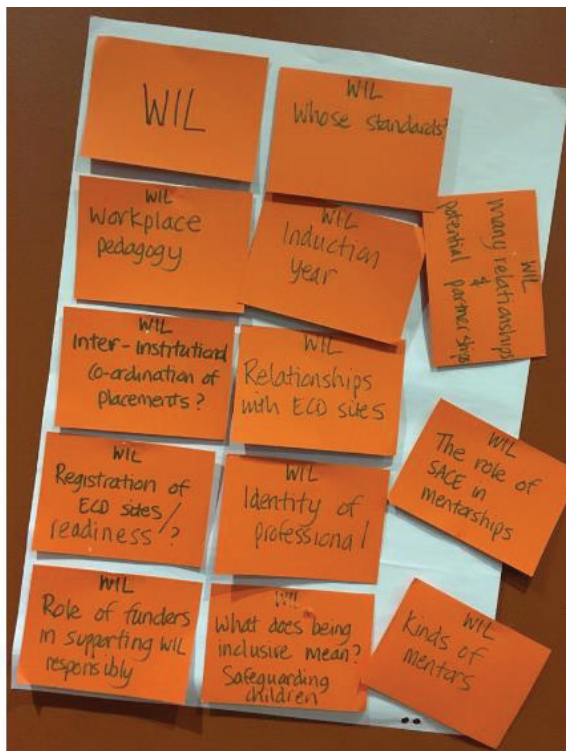 WIL
WIL
Whose standards?
WIL
Workplace
pedagogy
WIL
Induction
year
WIL
many relationships
&
potential partnerships
WIL
Inter-institutional
co-ordination of
placements?
WIL
Relationships
with ECD sites
WIL
Registration of
ECD sites/
readiness?
WIL
Identity of
professional
WIL
The role of
SACE in
mentorships
WIL
Role of funders
in supporting WIL
responsibly
WIL
What does being
inclusive mean?
Safeguarding
children
WIL
Kinds of
mentors